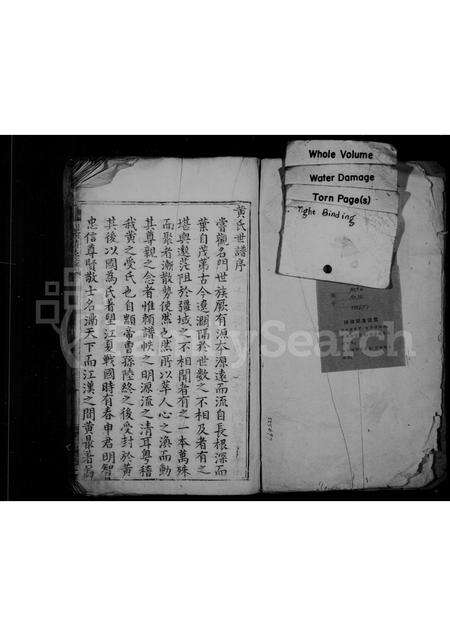 Whole Volume
Water Damage
Torn Page(s)
Tight Binding
黃氏世譜序
嘗觀名門世族厥有源本源遠而流自長根深而
葉自茂第古今遼濶隔於世數之不相及者有之
堪輿遼茫阻於疆域之不相聞者有之一本萬殊
而聚者漸散勢使然也然所以萃人心之渙而動
其尊親之念者惟賴譜帙之明源流之清耳粵稽
我黃之受氏也自顓帝曾孫陸終之後受封於黃
其後以國為氏者望江夏戰國時有春申君明智
忠信尊賢散士名滿天下而江漢之間黃最著焉
FamilySearch